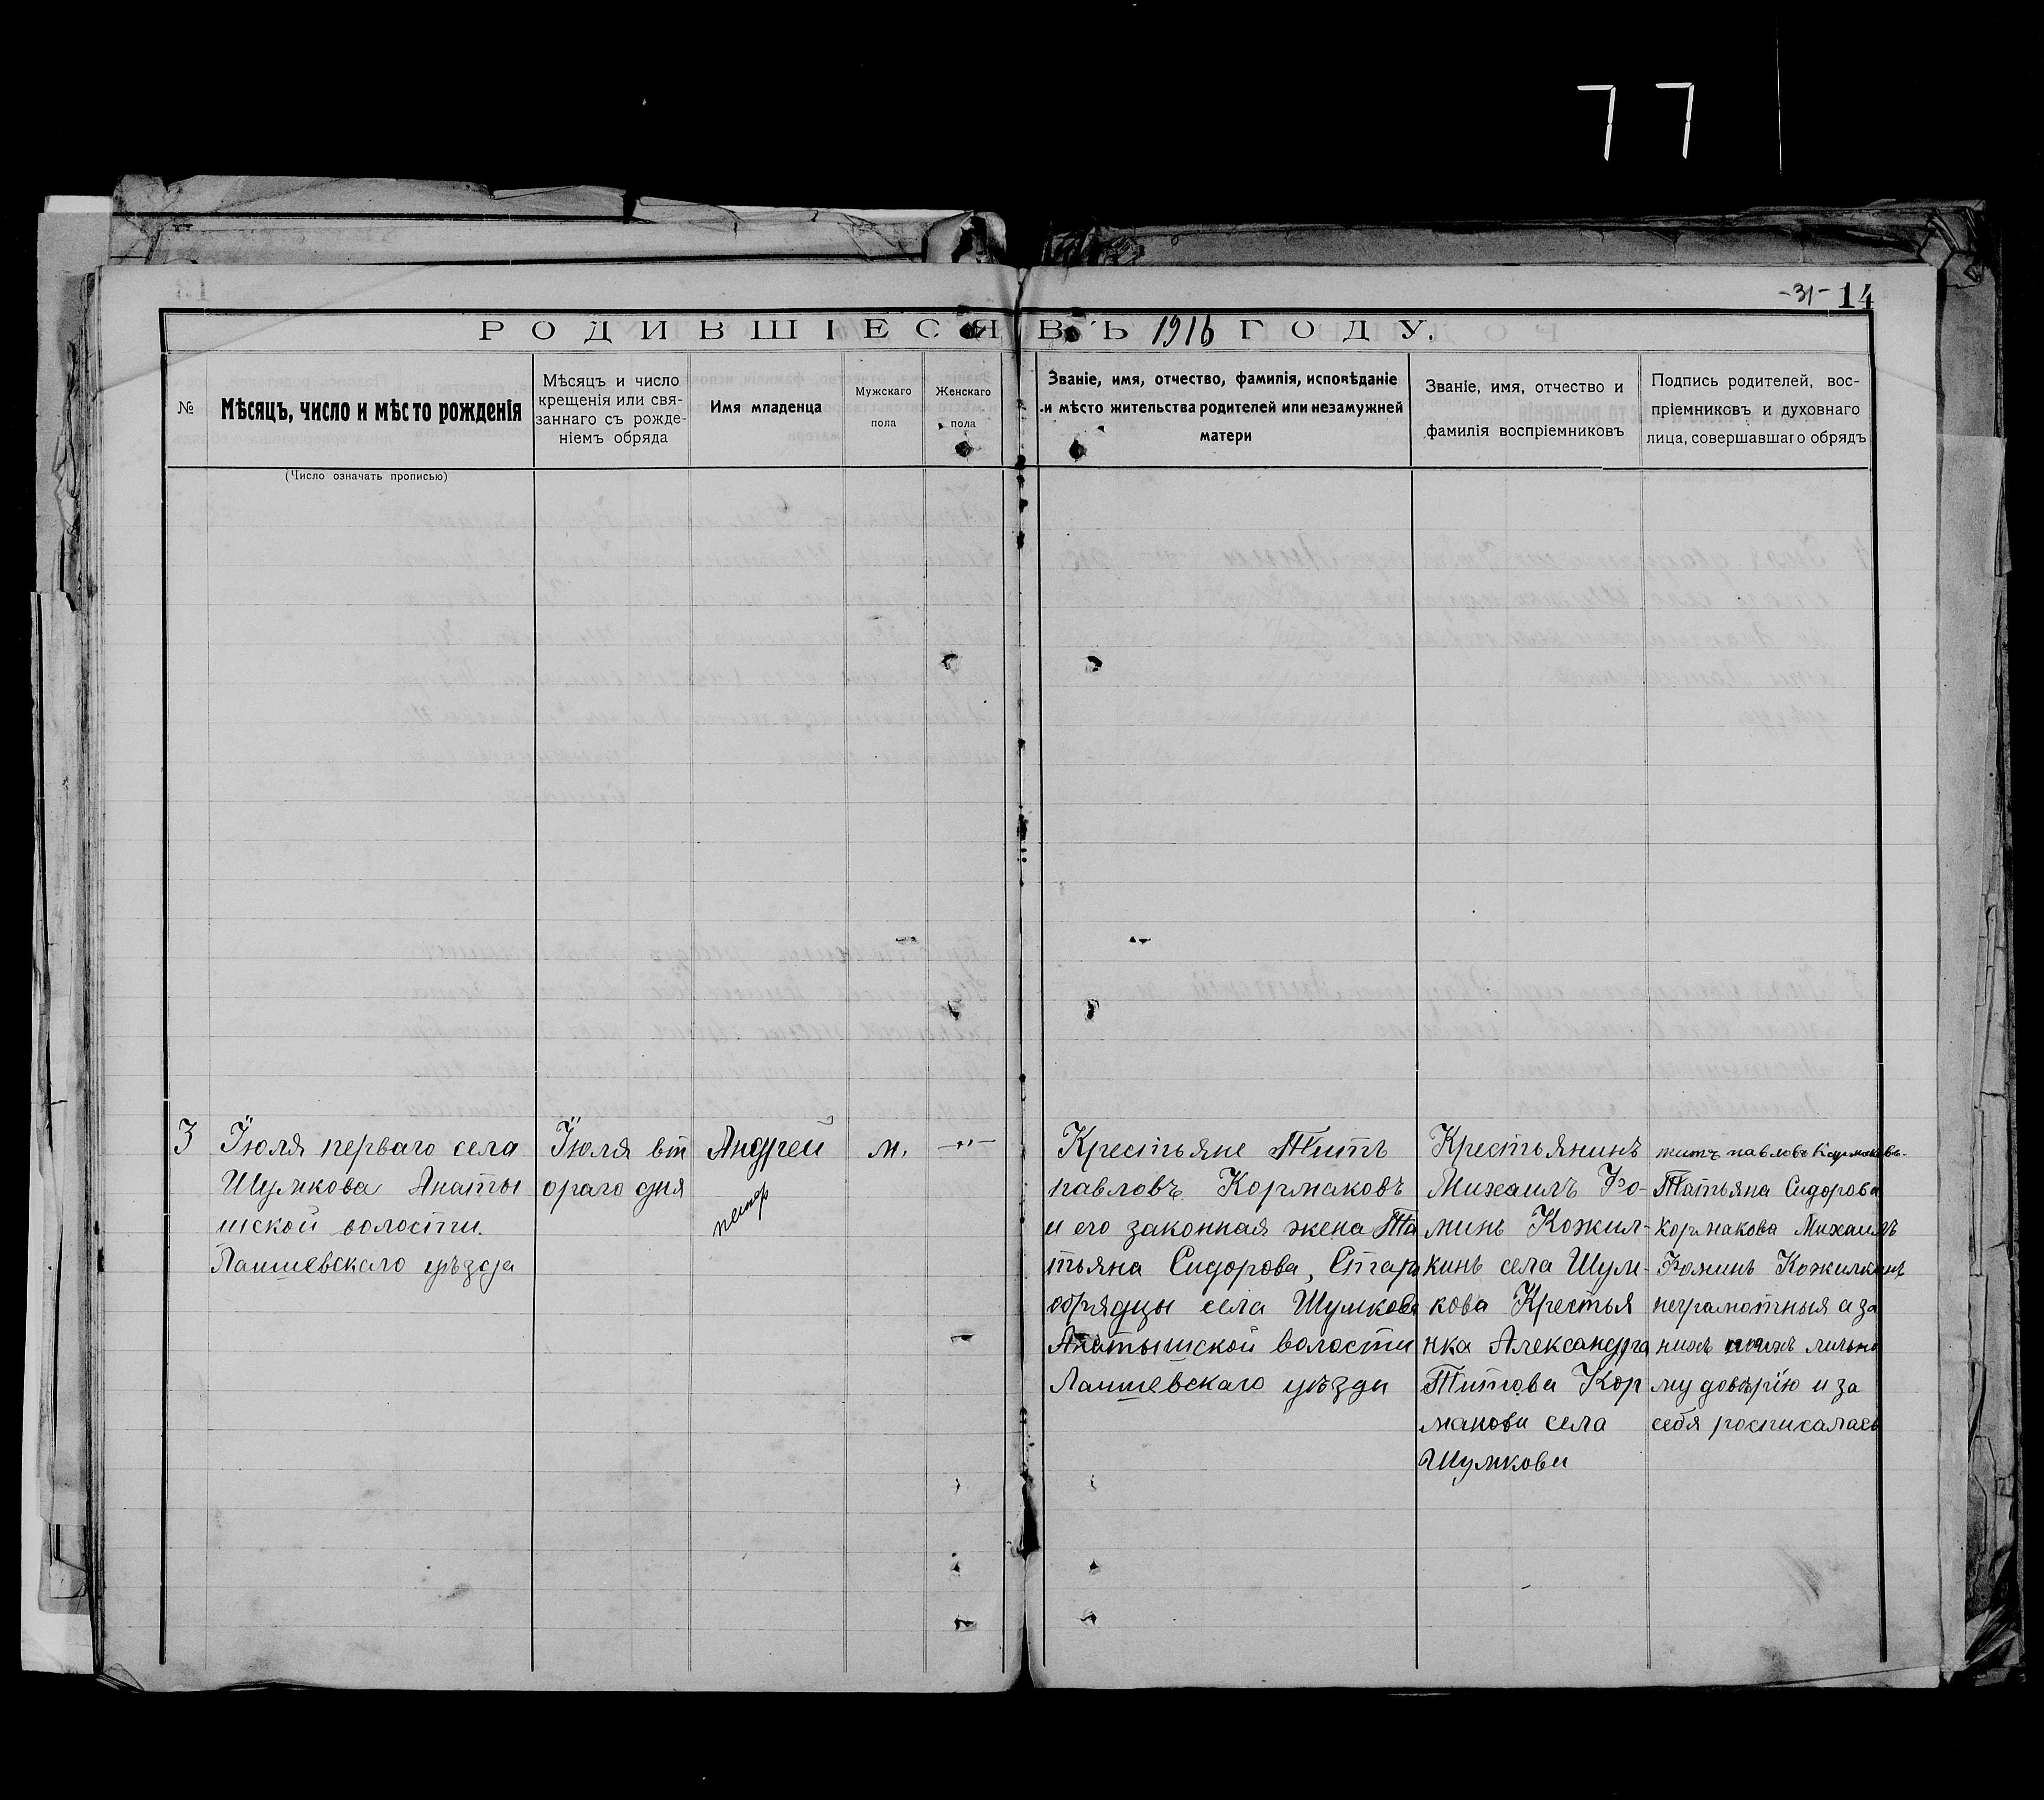 77
-31- 14
РОДИВШІЕСЯ ВЪ 1916 ГОДУ.
№
Мѣсяцъ, число и мѣсто рожденія
Мѣсяцъ и число
крещенія или свя-
заннаго съ рожде-
ніемъ обряда
Имя младенца
Мужскаго
пола
Женскаго
пола
Званіе, имя, отчество, фамилія, исповѣданіе
и мѣсто жительства родителей или незамужней
матери
Званіе, имя, отчество и
фамилія воспріемниковъ
Подпись родителей, вос-
пріемниковъ и духовнаго
лица, совершавшаго обрядъ
(Число означать прописью)
3
Іюля перваго села
Шумкова Анаты
шской волости.
Лаишевскаго уѣзда
Іюля вт
ораго дня
Андрей
м.
—"—
Крестьяне Титъ
павловъ Кормаковъ
и его законная жена Та
тьяна Сидорова, Старо
обрядцы села Шумкова
Анатышской волости
Лаишевскаго уѣзда
Крестьянинъ
Михаилъ Фо-
минъ Кожил-
кинъ села Шум-
кова Крестья
нка Александра
Титова Кор
макова села
Шумкова
титъ павловъ Кормаковъ-
Татьяна Сидорова
кормакова Михаилъ
Фоминъ Кожилкинъ
неграмотныя а за
нихъ ихъ лично
му довѣрію и за
себя росписалась